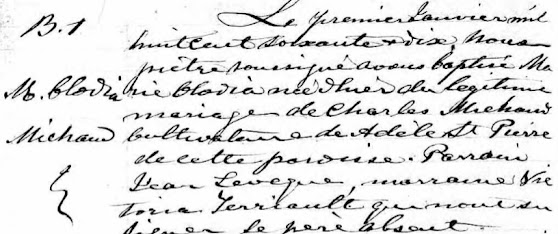 B. 1
M. Clodia
Michaud
Le premier Janvier mil
huit cent soixante & dix, Nous
prêtre soussigné avons baptisé Ma
rie Clodia née d'hier du légitime
mariage de Charles Michaud
Cultivateur & de Adèle St Pierre
de cette paroisse. Parrain
Jean Levesque, marraine Vic
toria Terriault qui n'ont su
signer le père absent.